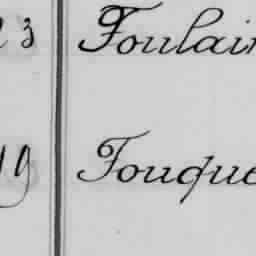 23 Foulain
19 Fouque